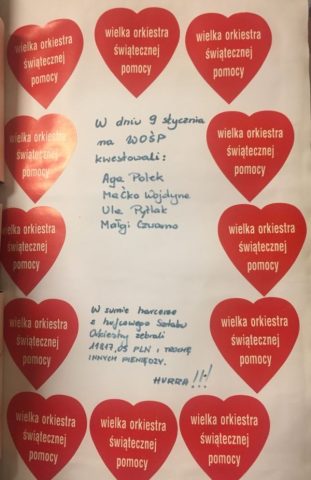 wielka orkiestra
świątecznej
pomocy
wielka orkiestra
świątecznej
pomocy
wielka orkiestra
świątecznej
pomocy
wielka orkiestra
świątecznej
pomocy
W dniu 9 stycznia
na WOŚP
kwestowali:
Aga Polek
Maćko Wojdyne
Ula Pytlak
Małgi Czwarno
wielka orkiestra
świątecznej
pomocy
wielka orkiestra
świątecznej
pomocy
wielka orkiestra
świątecznej
pomocy
wielka orkiestra
świątecznej
pomocy
W sumie harcerze
z hufcowego Sztabu
Orkiestry zebrali
11817,05 PLN i TROCHĘ
INNYCH PIENIĘDZY.
HURRA!!!
wielka orkiestra
świątecznej
pomocy
wielka orkiestra
świątecznej
pomocy
wielka orkiestra
świątecznej
pomocy
wielka orkiestra
świątecznej
pomocy